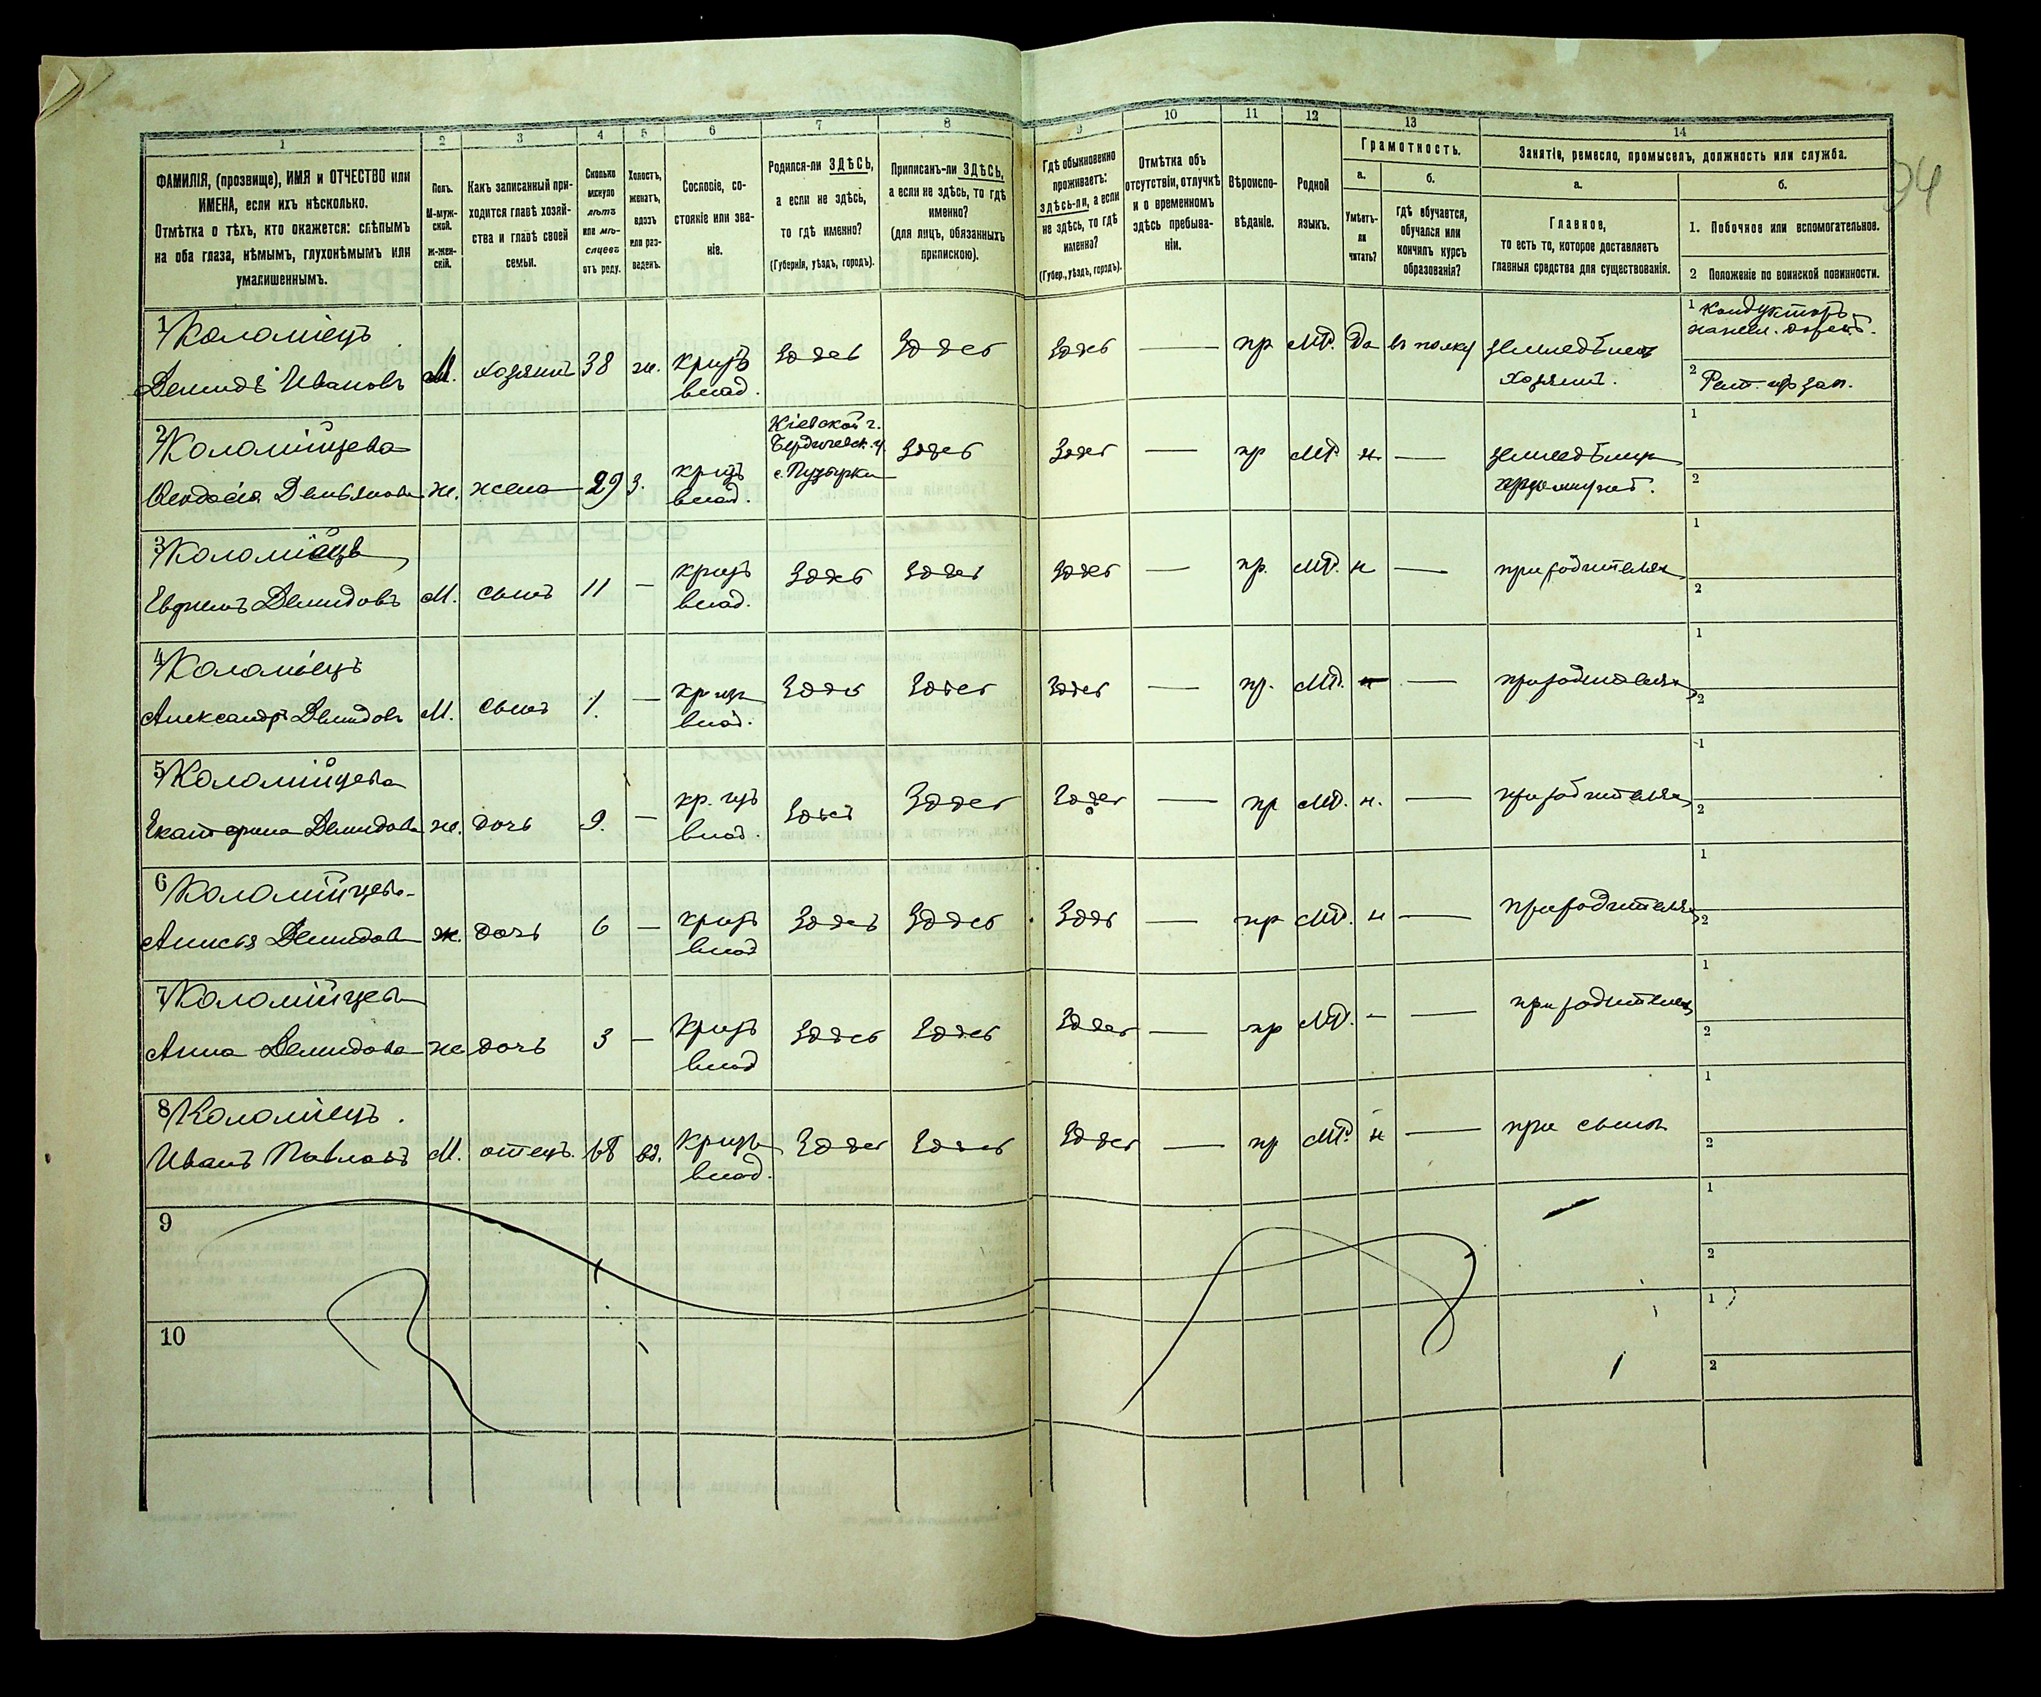 94
1 2 3 4 5 6 7 8 9 10 11 12 13 14
ФАМИЛІЯ, (прозвище), ИМЯ и ОТЧЕСТВО или
ИМЕНА, если ихъ нѣсколько.
Отмѣтка о тѣхъ, кто окажется: слѣпымъ
на оба глаза, нѣмымъ, глухонѣмымъ или
умалишеннымъ.
Полъ.
М-муж-
ской.
Ж-жен-
скій.
Какъ записанный при-
ходится главѣ хозяй-
ства и главѣ своей
семьи.
Сколько
минуло
лѣтъ
или мѣ-
сяцевъ
отъ роду.
Холостъ,
женатъ,
вдовъ
или раз-
веденъ.
Сословіе, со-
стояніе или зва-
ніе.
Родился-ли ЗДѢСЬ,
а если не здѣсь,
то гдѣ именно?
(Губернія, уѣздъ, городъ).
Приписанъ-ли ЗДѢСЬ,
а если не здѣсь, то гдѣ
именно?
(для лицъ, обязанныхъ
припискою).
Гдѣ обыкновенно
проживаетъ:
здѣсь-ли, а если
не здѣсь, то гдѣ
именно?
(Губер., уѣздъ, городъ).
Отмѣтка объ
отсутствіи, отлучкѣ
и о временномъ
здѣсь пребыва-
ніи.
Вѣроиспо-
вѣданіе.
Родной
языкъ.
Грамотность.
а.
Умѣетъ-
ли
читать?
б.
гдѣ обучается,
обучался или
кончилъ курсъ
образованія?
Занятіе, ремесло, промыселъ, должность или служба.
а.
Главное,
то есть то, которое доставляетъ
главныя средства для существованія.
б.
1. Побочное или вспомогательное.
2 Положеніе по воинской повинности.
1 Коломіецъ
Демидъ Ивановъ М. хозяинъ 38 ж. кр изъ влад. Здѣсь Здѣсь Здѣсь — пр МР. Да въ полку земледѣлецъ хозяинъ.
1 Кондукторъ
2
2 Коломійцева
Ѳеодосія Демьянова ж. жена 29 з. кр изъ влад. Кіевской г. Бердичевск. у. с. Пузырки Здѣсь Здѣсь — пр МР. н. —
1
2
3 Коломіецъ
Евфимъ Демидовъ М. сынъ 11 — кр изъ влад. Здѣсь Здѣсь Здѣсь — пр. МР. н — при родителяхъ
1
2
4 Коломіецъ
Александръ Демидовъ М. сынъ 1. — кр изъ влад. Здѣсь Здѣсь Здѣсь — пр. МР. — при родителяхъ
1
2
5 Коломійцева
Екатерина Демидова ж. дочь 9. — кр. изъ влад. Здѣсь Здѣсь Здѣсь — пр МР. н. — при родителяхъ
1
2
6 Коломійцева
Анисья Демидова ж. дочь 6 — кр изъ влад Здѣсь Здѣсь Здѣсь — пр МР. н — при родителяхъ
1
2
7 Коломійцева
Анна Демидова ж дочь 3 — кр изъ влад Здѣсь Здѣсь Здѣсь — пр МР. — — при родителяхъ
1
2
8 Коломіецъ.
Иванъ Павловъ М. отецъ. вд. кр изъ влад. Здѣсь Здѣсь Здѣсь — пр МР. н — при сынѣ
1
2
9
1
2
10
1
2